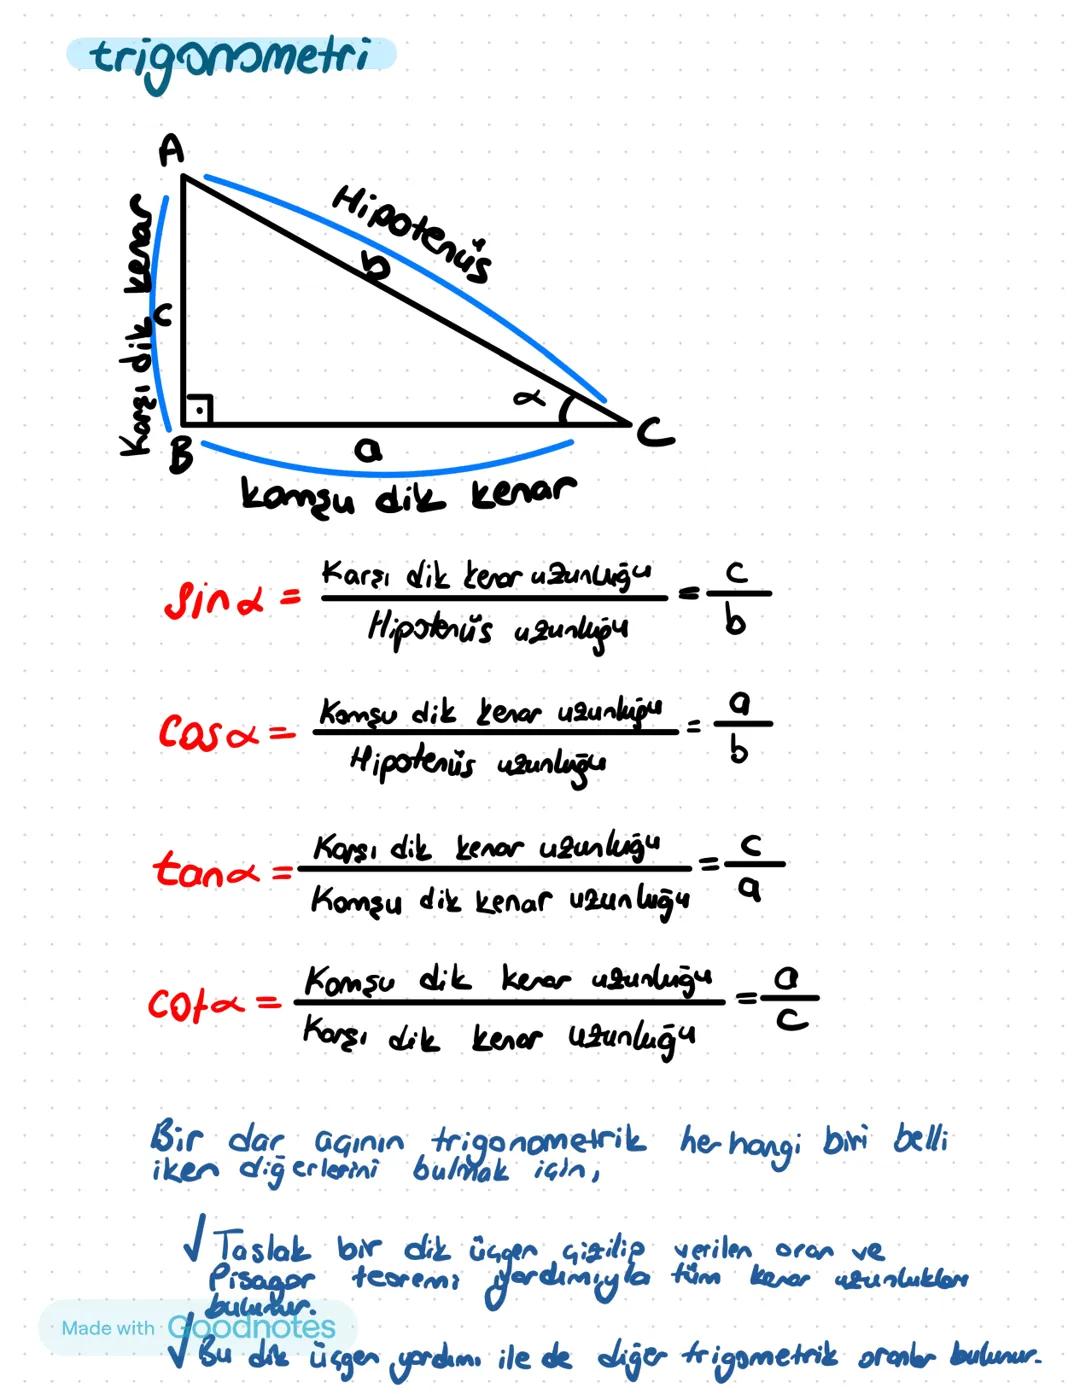 trigonometri
A
Hipotenüs
b
Karşı dik kenar
c
α
B
a
C
komşu dik kenar
sin α = Karşı dik kenar uzunluğu / Hipotenüs uzunluğu = c / b
cos α = Komşu dik kenar uzunluğu / Hipotenüs uzunluğu = a / b
tan α = Karşı dik kenar uzunluğu / Komşu dik kenar uzunluğu = c / a
cot α = Komşu dik kenar uzunluğu / Karşı dik kenar uzunluğu = a / c
Bir dar açının trigonometrik herhangi biri belli
iken diğerlerini bulmak için,
√ Taslak bir dik üçgen çizilip verilen oran ve
Pisagor teoremi yardımıyla tüm kenar uzunlukları
bulunur.
Made with Goodnotes
√ Bu dik üçgen yardımı ile de diğer trigometrik oranlar bulunur.